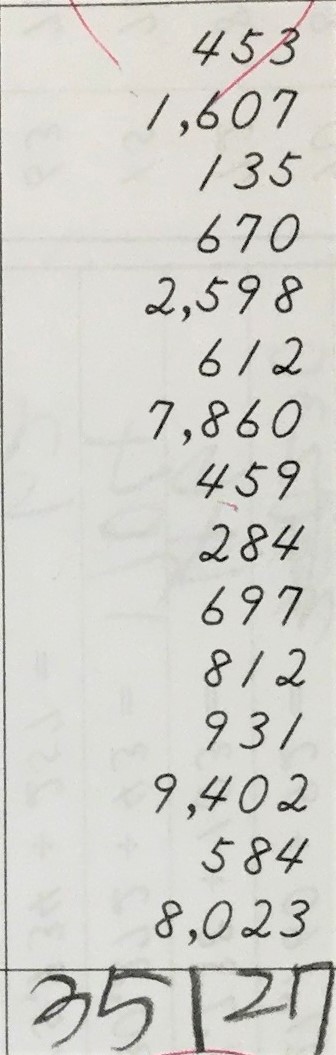 453
1,607
135
670
2,598
612
7,860
459
284
697
812
931
9,402
584
8,023
35127